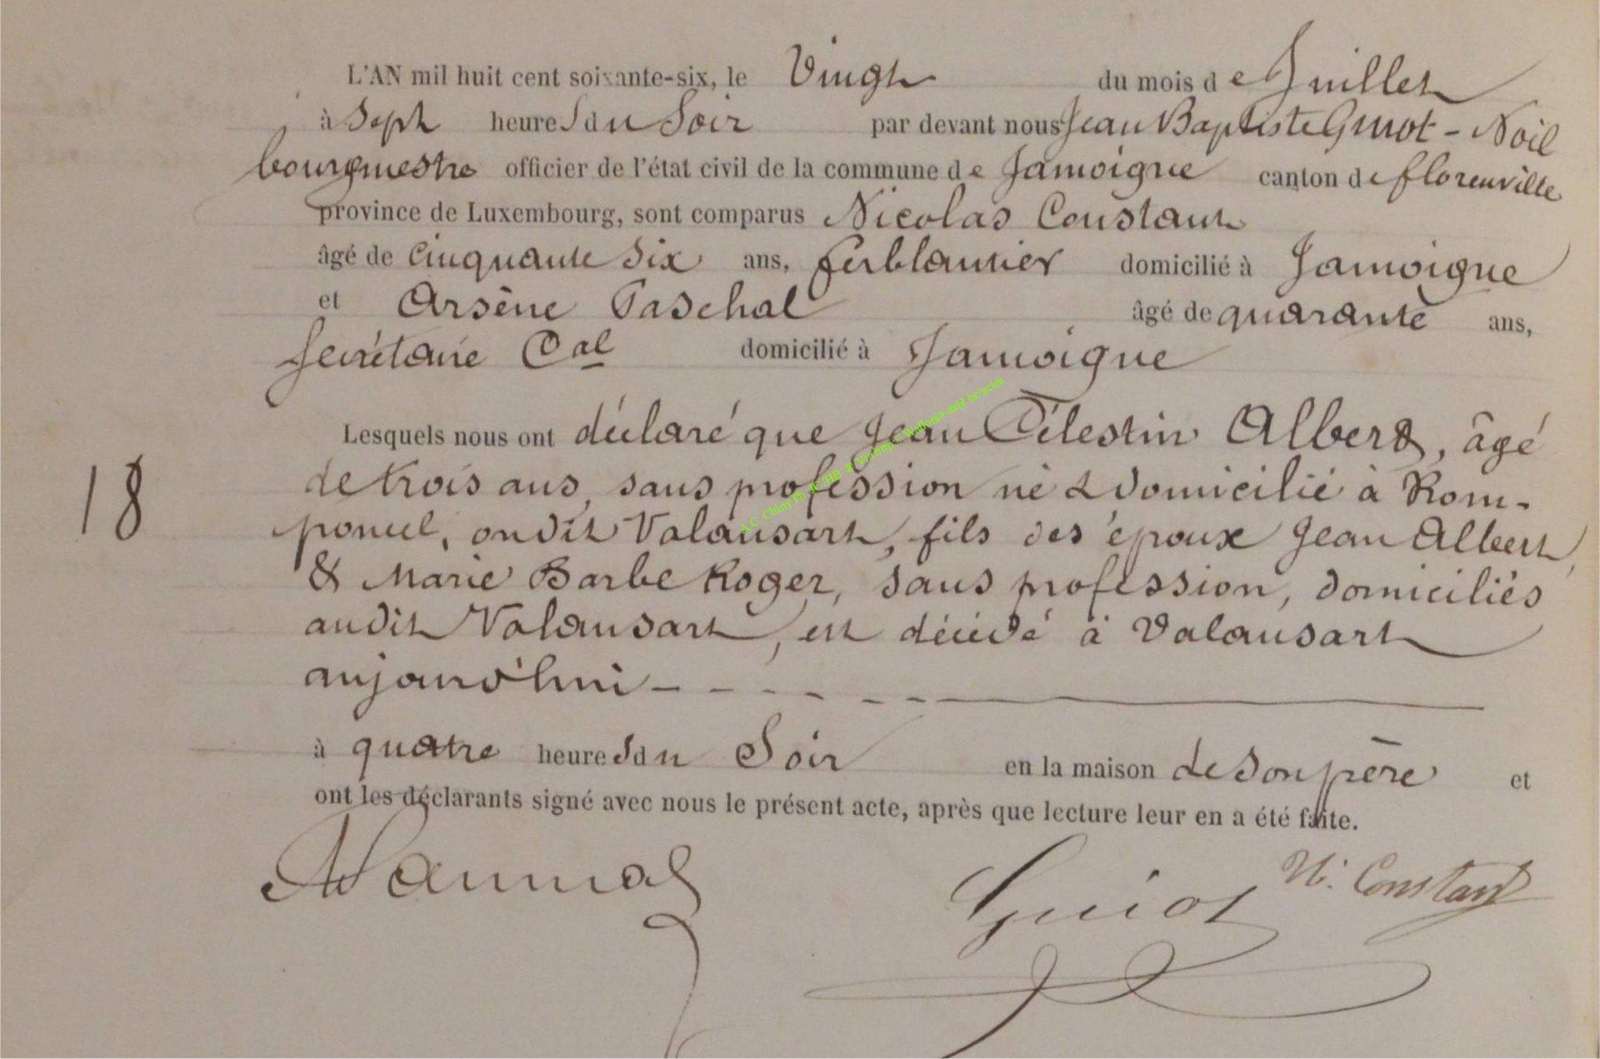 L'AN mil huit cent soixante-six, le Vingt du mois de Juillet
à Sept heures du Soir par devant nous Jean Baptiste Guiot - Noil
bourgmestre officier de l'état civil de la commune de Jamoigne canton de florenville
province de Luxembourg, sont comparus Nicolas Constant
âgé de cinquante six ans, ferblantier domicilié à Jamoigne
et Arsène Paschal âgé de quarante ans,
Secrétaire Cal domicilié à Jamoigne
Lesquels nous ont déclaré que Jean Célestin Albert, âgé
de trois ans, sans profession né & domicilié à Rom-
18
poncel, audit Valansart, fils des époux Jean Albert,
& Marie Barbe Roger, sans profession, domiciliés
audit Valansart, est décédé à Valansart
aujourd'hui
à quatre heures du Soir en la maison de son père et
ont les déclarants signé avec nous le présent acte, après que lecture leur en a été faite.
Guiot N. Constant